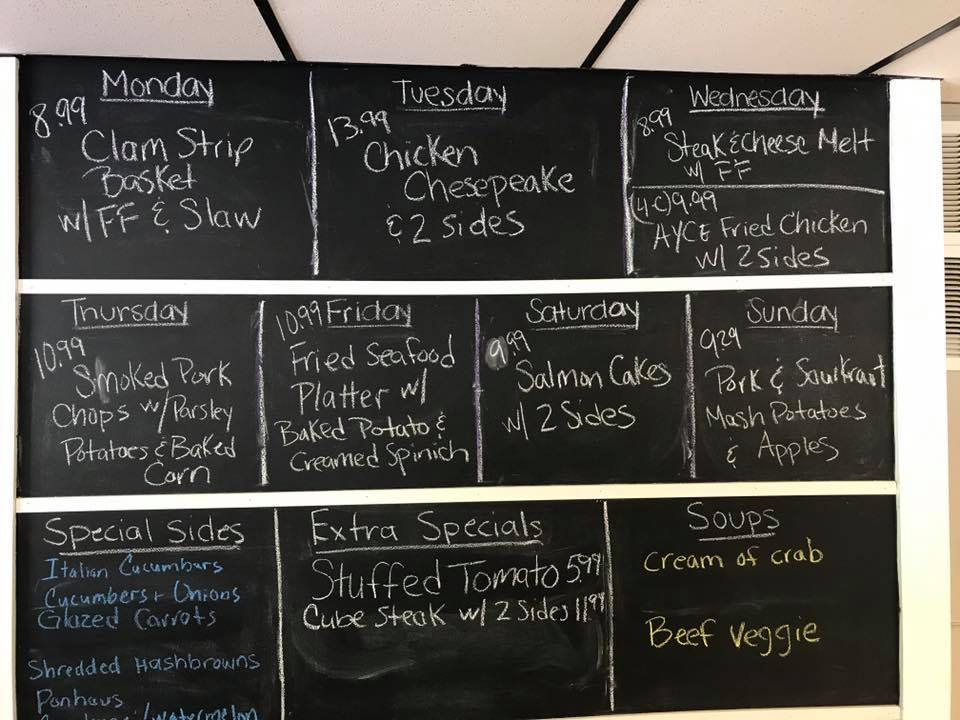 Monday
8.99
Clam Strip
Basket
w/ FF & Slaw
Tuesday
13.99
Chicken
Chesepeake
& 2 Sides
Wednesday
8.99
Steak & Cheese Melt
w/ FF
(4-C) 9.99
AYCE Fried Chicken
w/ 2 Sides
Thursday
10.99
Smoked Pork
Chops w/ Parsley
Potatoes & Baked
Corn
10.99 Friday
Fried Seafood
Platter w/
Baked Potato &
Creamed Spinich
Saturday
9.99
Salmon Cakes
w/ 2 Sides
Sunday
9.29
Pork & Sourkraut
Mash Potatoes
& Apples
Special Sides
Italian Cucumburs
Cucumbers + Onions
Glazed Carrots
Shredded Hashbrowns
Panhaus
/watermelon
Extra Specials
Stuffed Tomato 5.99
Cube Steak w/ 2 Sides 11.99
Soups
Cream of crab
Beef Veggie